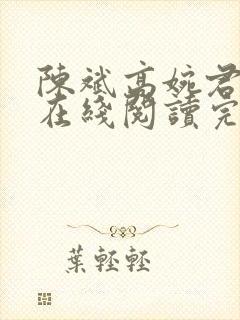 陳斌高婉君
在綫閱讀完
葉輕輕